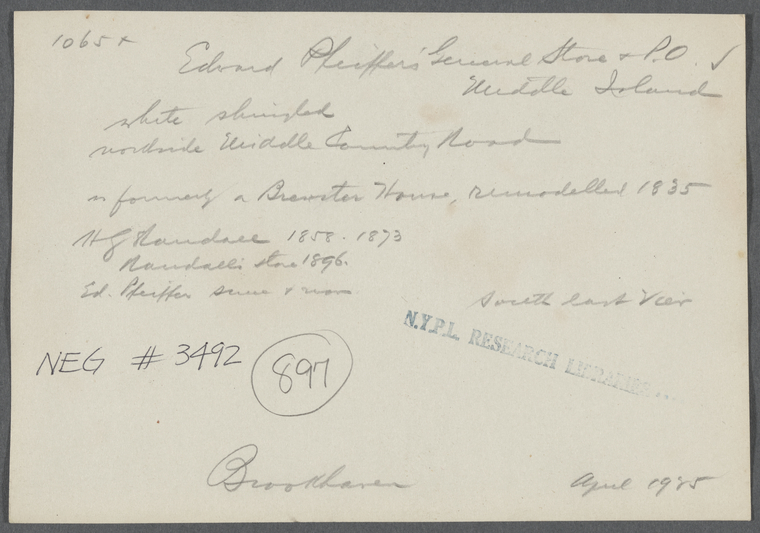 1065+
Edward Pfeiffer's General Store & P.O. ✓
Middle Island
white shingled
northside Middle Country Road
formerly a Brewster House, remodelled 1835
H G Randall 1858-1873
Randall's store 1896.
Ed. Pfeiffer since & now
South East View
N.Y.P.L. RESEARCH LIBRARIES
NEG # 3492
897
Brookhaven
April 1925